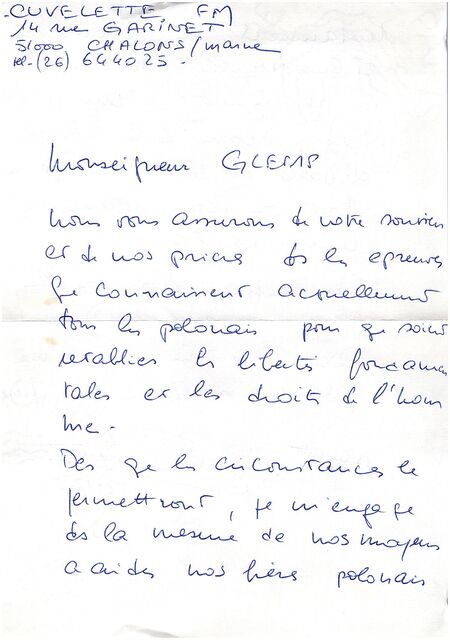 CUVELETTE FM
14 rue GARINET
51000 CHALONS/marne
tel-(26) 644025.
Monseigneur GLEMP
Nous vous assurons de notre soutien
et de nos prieres ds les epreuves
qe connaissent actuellement
tous les polonais pour qe soient
retablies les libertés fondamen
tales et les droits de l'hom
me.
Des qe les circonstances le
permettront, je m'engage
ds la mesure de nos moyens
a aider nos freres polonais